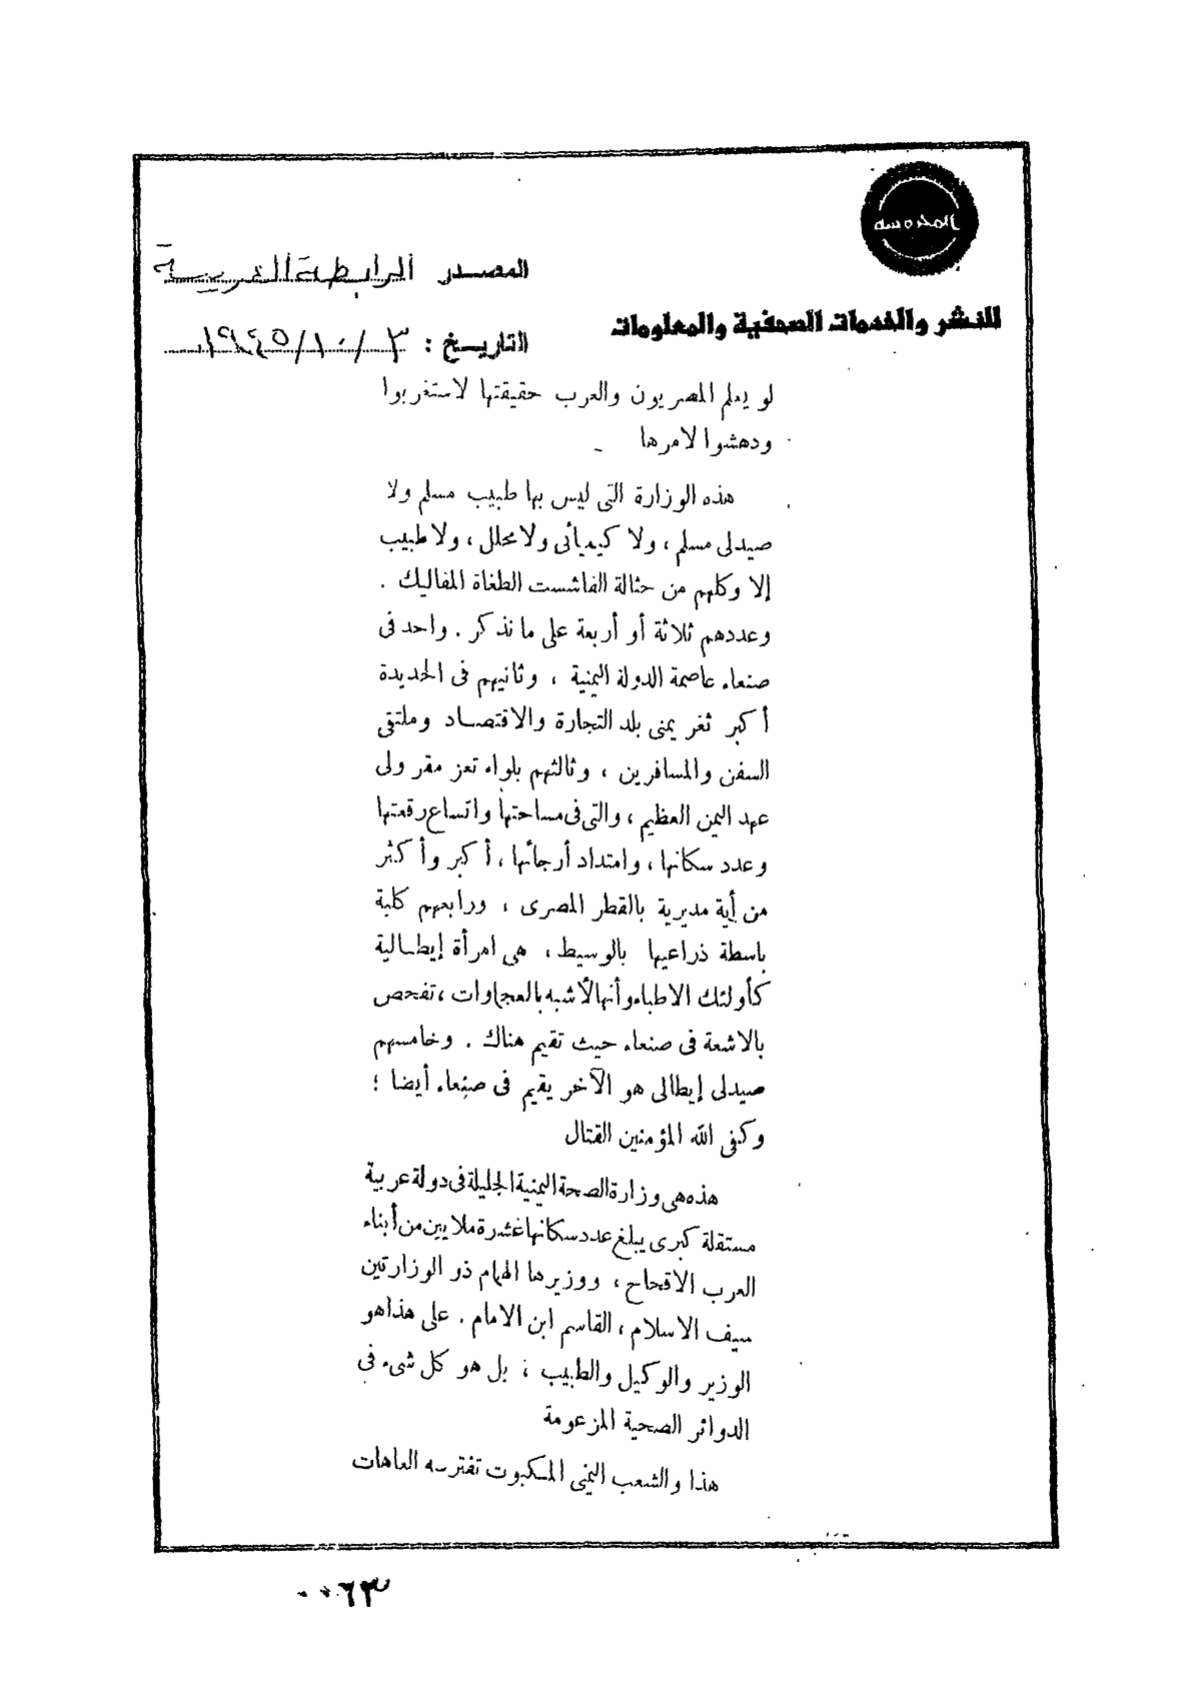 المصدر الرابطة العربية
للنشر والخدمات الصحفية والمعلومات
التاريخ : ٣/١٠/١٩٤٥
لو يعلم المصريون والعرب حقيقتها لاستغربوا
ودهشوا لامرها
هذه الوزارة التى ليس بها طبيب مسلم ولا
صيدلى مسلم ، ولا كيميائى ولا محلل ، ولا طبيب
إلا وكلهم من حثالة الفاشست الطغاة المفاليك .
وعددهم ثلاثة أو أربعة على ما نذكر . واحد فى
صنعاء عاصمة الدولة اليمنية ، وثانيهم فى الحديدة
أكبر ثغر يمنى بلد التجارة والاقتصاد وملتقى
السفن والمسافرين ، وثالثهم بلواء تعز مقر ولى
عهد اليمن العظيم ، والتى فى مساحتها واتساع رقعتها
وعدد سكانها ، وامتداد أرجائها ، أكبر وأكثر
من أية مديرية بالقطر المصرى ، ورابعهم كلبة
باسطة ذراعيها بالوسيط ، هى امرأة إيطالية
كأولئك الاطباء وأنها لأشبه بالعجماوات ، تفحص
بالاشعة فى صنعاء حيث تقيم هناك . وخامسهم
صيدلى إيطالى هو الآخر يقيم فى صنعاء أيضا ؛
وكفى الله المؤمنين القتال
هذه هى وزارة الصحة اليمنية الجليلة فى دولة عربية
مستقلة كبرى يبلغ عدد سكانها عشرة ملايين من أبناء
العرب الاقحاح ، ووزيرها الهمام ذو الوزارتين
سيف الاسلام ، القاسم ابن الامام . على هذا هو
الوزير والوكيل والطبيب ؛ بل هو كل شىء فى
الدوائر الصحية المزعومة
هذا والشعب اليمنى المنكوب تفترسه العاهات
٠٠٦٣